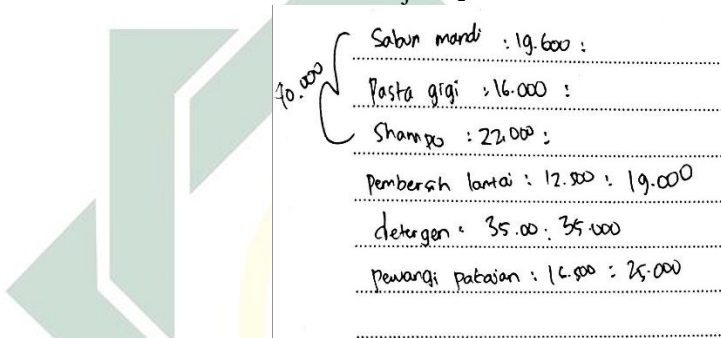 Sabun mandi : 19.600 :
70.000
Pasta gigi : 16.000 :
Shampo : 22.000 :
Pembersih lantai : 12.500 : 19.000
detergen : 35.00 : 35.000
Pewangi pakaian : 16.500 : 25.000